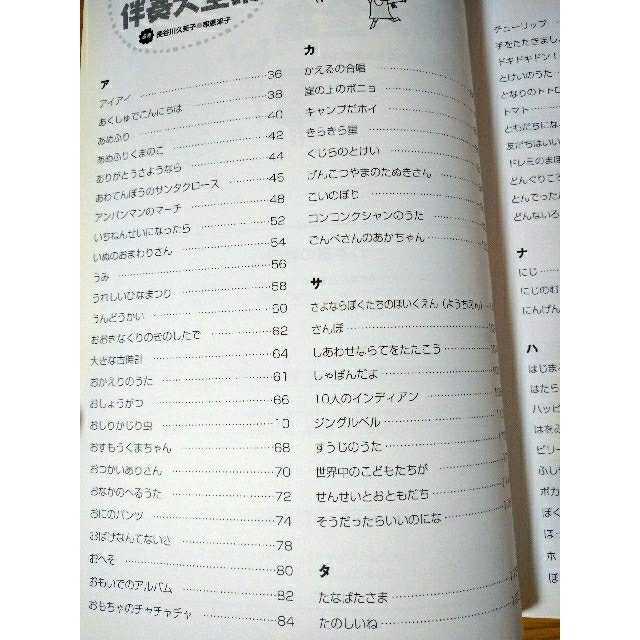 伴奏大全集
長谷川久美子
ア
アイアイ 36
あくしゅでこんにちは 38
あめふり 40
あめふりくまのこ 42
ありがとうさようなら 44
あわてんぼうのサンタクロース 45
アンパンマンのマーチ 48
いちねんせいになったら 52
いぬのおまわりさん 54
うみ 56
うれしいひなまつり 58
うんどうかい 60
おおきなくりのきのしたで 62
大きな古時計 64
おかえりのうた 61
おしょうがつ 66
おしりかじり虫 10
おすもうくまちゃん 68
おつかいありさん 70
おなかのへるうた 72
おにのパンツ 74
おばけなんてないさ 78
おへそ 80
おもいでのアルバム 82
おもちゃのチャチャチャ 84
カ
かえるの合唱
崖の上のポニョ
キャンプだホイ
きらきら星
くじらのとけい
げんこつやまのたぬきさん
こいのぼり
コンコンクシャンのうた
ごんべさんのあかちゃん
サ
さよならぼくたちのほいくえん（ようちえん）
さんぽ
しあわせならてをたたこう
しゃぼんだよ
10人のインディアン
ジングルベル
すうじのうた
世界中のこどもたちが
せんせいとおともだち
そうだったらいいのにな
タ
たなばたさま
たのしいね
チューリップ
手をたたきまし
ドキドキドン！
とけいのうた
となりのトトロ
トマト
ともだちにな
友だちはいい
ドレミのまほ
どんぐりころ
とんでったバ
どんないろ
ナ
にじ
にじのむ
にんげん
ハ
はじまる
はたら
ハッピ
はをみ
ビリー
ふし
ポカ
ぼく
ほ
ホ
ぼ